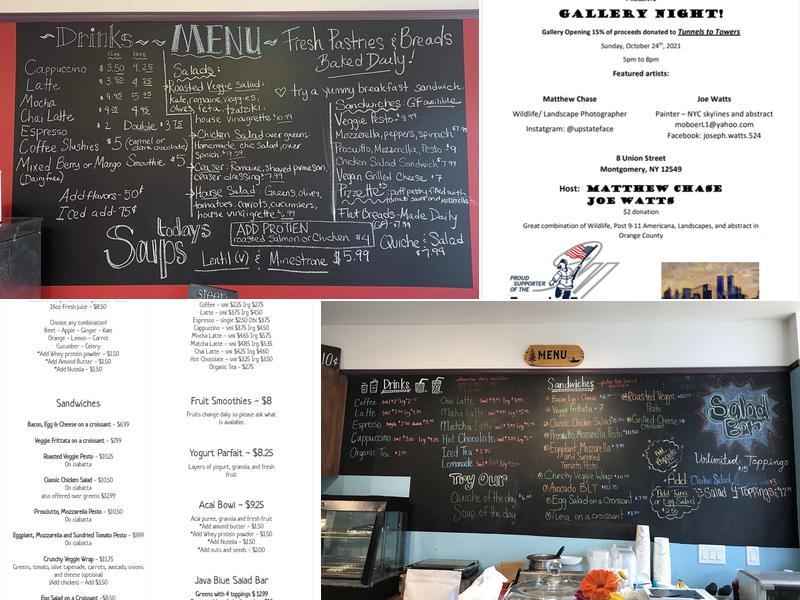 ~Drinks~~
12oz 16oz
Cappuccino $3.50 4.25
Latte $3.50 4.25
Mocha $4.25 5.25
Chai Latte $4.25 4.95
Espresso $2 Double $3.75
Coffee Slushies $5 (caramel or dark chocolate)
Mixed Berry or Mango Smoothie $5
(Dairy free)
Add flavors-50¢
Iced add-75¢
MENU
Salads:
Roasted Veggie Salad:
kale, romaine, veggies,
olives, feta, tzatziki,
house vinagrette $10.99
Chicken Salad over greens:
Homemade chic salad over
spnich $9.59
Ceaser: Romaine, shaved parmesan,
ceaser dressing $7.99
House Salad: Greens, olives,
tomatoes, carrots, cucumbers,
house vinaigrette
Fresh Pastries & Breads
Baked Daily!
♡ try a yummy breakfast sandwich.
Sandwiches: GF available
Veggie Pesto $8.99
Mozzerella, peppers, spinach $7.99
Prosuitto, Mozzerella, Pesto $9
Chicken Salad Sandwich $7.99
Vegan Grilled Cheese $7
Pizzette: puff pastry filled with
tomato sauce and mozzerella
Flat Breads-Made Daily
(GF) $7.99
Quiche & Salad
$7.99
todays
Soups
ADD PROTIEN
roasted Salmon or Chicken $4
Lentil (v) & Minestrone $5.99
GALLERY NIGHT!
Gallery Opening 15% of proceeds donated to Tunnels to Towers
Sunday, October 24th, 2021
5pm to 8pm
Featured artists:
Matthew Chase
Wildlife/ Landscape Photographer
Instatgram: @upstateface
Joe Watts
Painter – NYC skylines and abstract
moboerL1@yahoo.com
Facebook: joseph.watts.524
8 Union Street
Montgomery, NY 12549
Host: MATTHEW CHASE
JOE WATTS
$2 donation
Great combination of Wildlife, Post 9-11 Americana, Landscapes, and abstract in
Orange County
PROUD
SUPPORTER
OF THE
16oz Fresh juice - $8.50
Choose any combination!
Beet - Apple - Ginger - Kale
Orange - Lemon - Carrot
Cucumber - Celery
*Add Whey protein powder - $1.50
*Add Almond Butter - $1.50
*Add Nutella - $1.50
Sandwiches
Bacon, Egg & Cheese on a croissant - $6.99
Veggie Frittata on a croissant - $7.99
Roasted Veggie Pesto - $10.25
On ciabatta
Classic Chicken Salad - $10.50
On ciabatta
also offered over greens $12.99
Prosciutto, Mozzarella Pesto - $10.50
On ciabatta
Eggplant, Mozzarella and Sundried Tomato Pesto - $9.99
On ciabatta
Crunchy Veggie Wrap - $11.75
Greens, tomato, olive tapenade, carrots, avocado, onions
and cheese (optional)
(Add chicken) - Add $3.50
Egg Salad on a Croissant - $8.50
Coffee - sml $2.25 lrg $2.75
Latte - sml $3.75 lrg $4.50
Espresso - single $2.50 Dbl $3.75
Cappuccino - sml $3.75 lrg $4.50
Mocha Latte - sml $4.65 lrg $5.75
Matcha Latte - sml $4.85 lrg $5.35
Chai Latte - sml $4.25 lrg $4.60
Hot Chocolate - sml $3.25 lrg $3.50
Organic Tea - $2.75
Fruit Smoothies - $8
Fruits change daily so please ask what
is available.
Yogurt Parfait - $8.25
Layers of yogurt, granola, and fresh
fruit
Acai Bowl - $9.25
Acai puree, granola and fresh fruit
*Add almond butter - $1.50
*Add Whey protein powder - $1.50
*Add Nutella - $1.50
*Add nuts and seeds - $2.00
Java Blue Salad Bar
Greens with 4 toppings $ 12.99
MENU
10¢
Drinks
Coffee
Latte
Espresso
Cappuccino
Organic Tea
Chai Latte
Mocha Latte
Matcha Latte
Hot Chocolate
Iced Tea
Lemonade
Try Our
Quiche of the day
Soup of the day
Sandwiches
Bacon Egg & Cheese
Veggie Frittata
Classic Chicken Salad
Prosuitto, Mozzarella Pesto
Eggplant, Mozzarella
and Sundried
Tomato Pesto
Crunchy Veggie Wrap
Avocado BLT
Egg Salad on a Croissant
Tuna on a croissant
Roasted Veggie
Pesto
Grilled Cheese
Add Tuna
or Egg Salad
$2.50
Salad
BAR
Unlimited Toppings
$15
Add Chicken Salad
Salad 4 Toppings $12.99